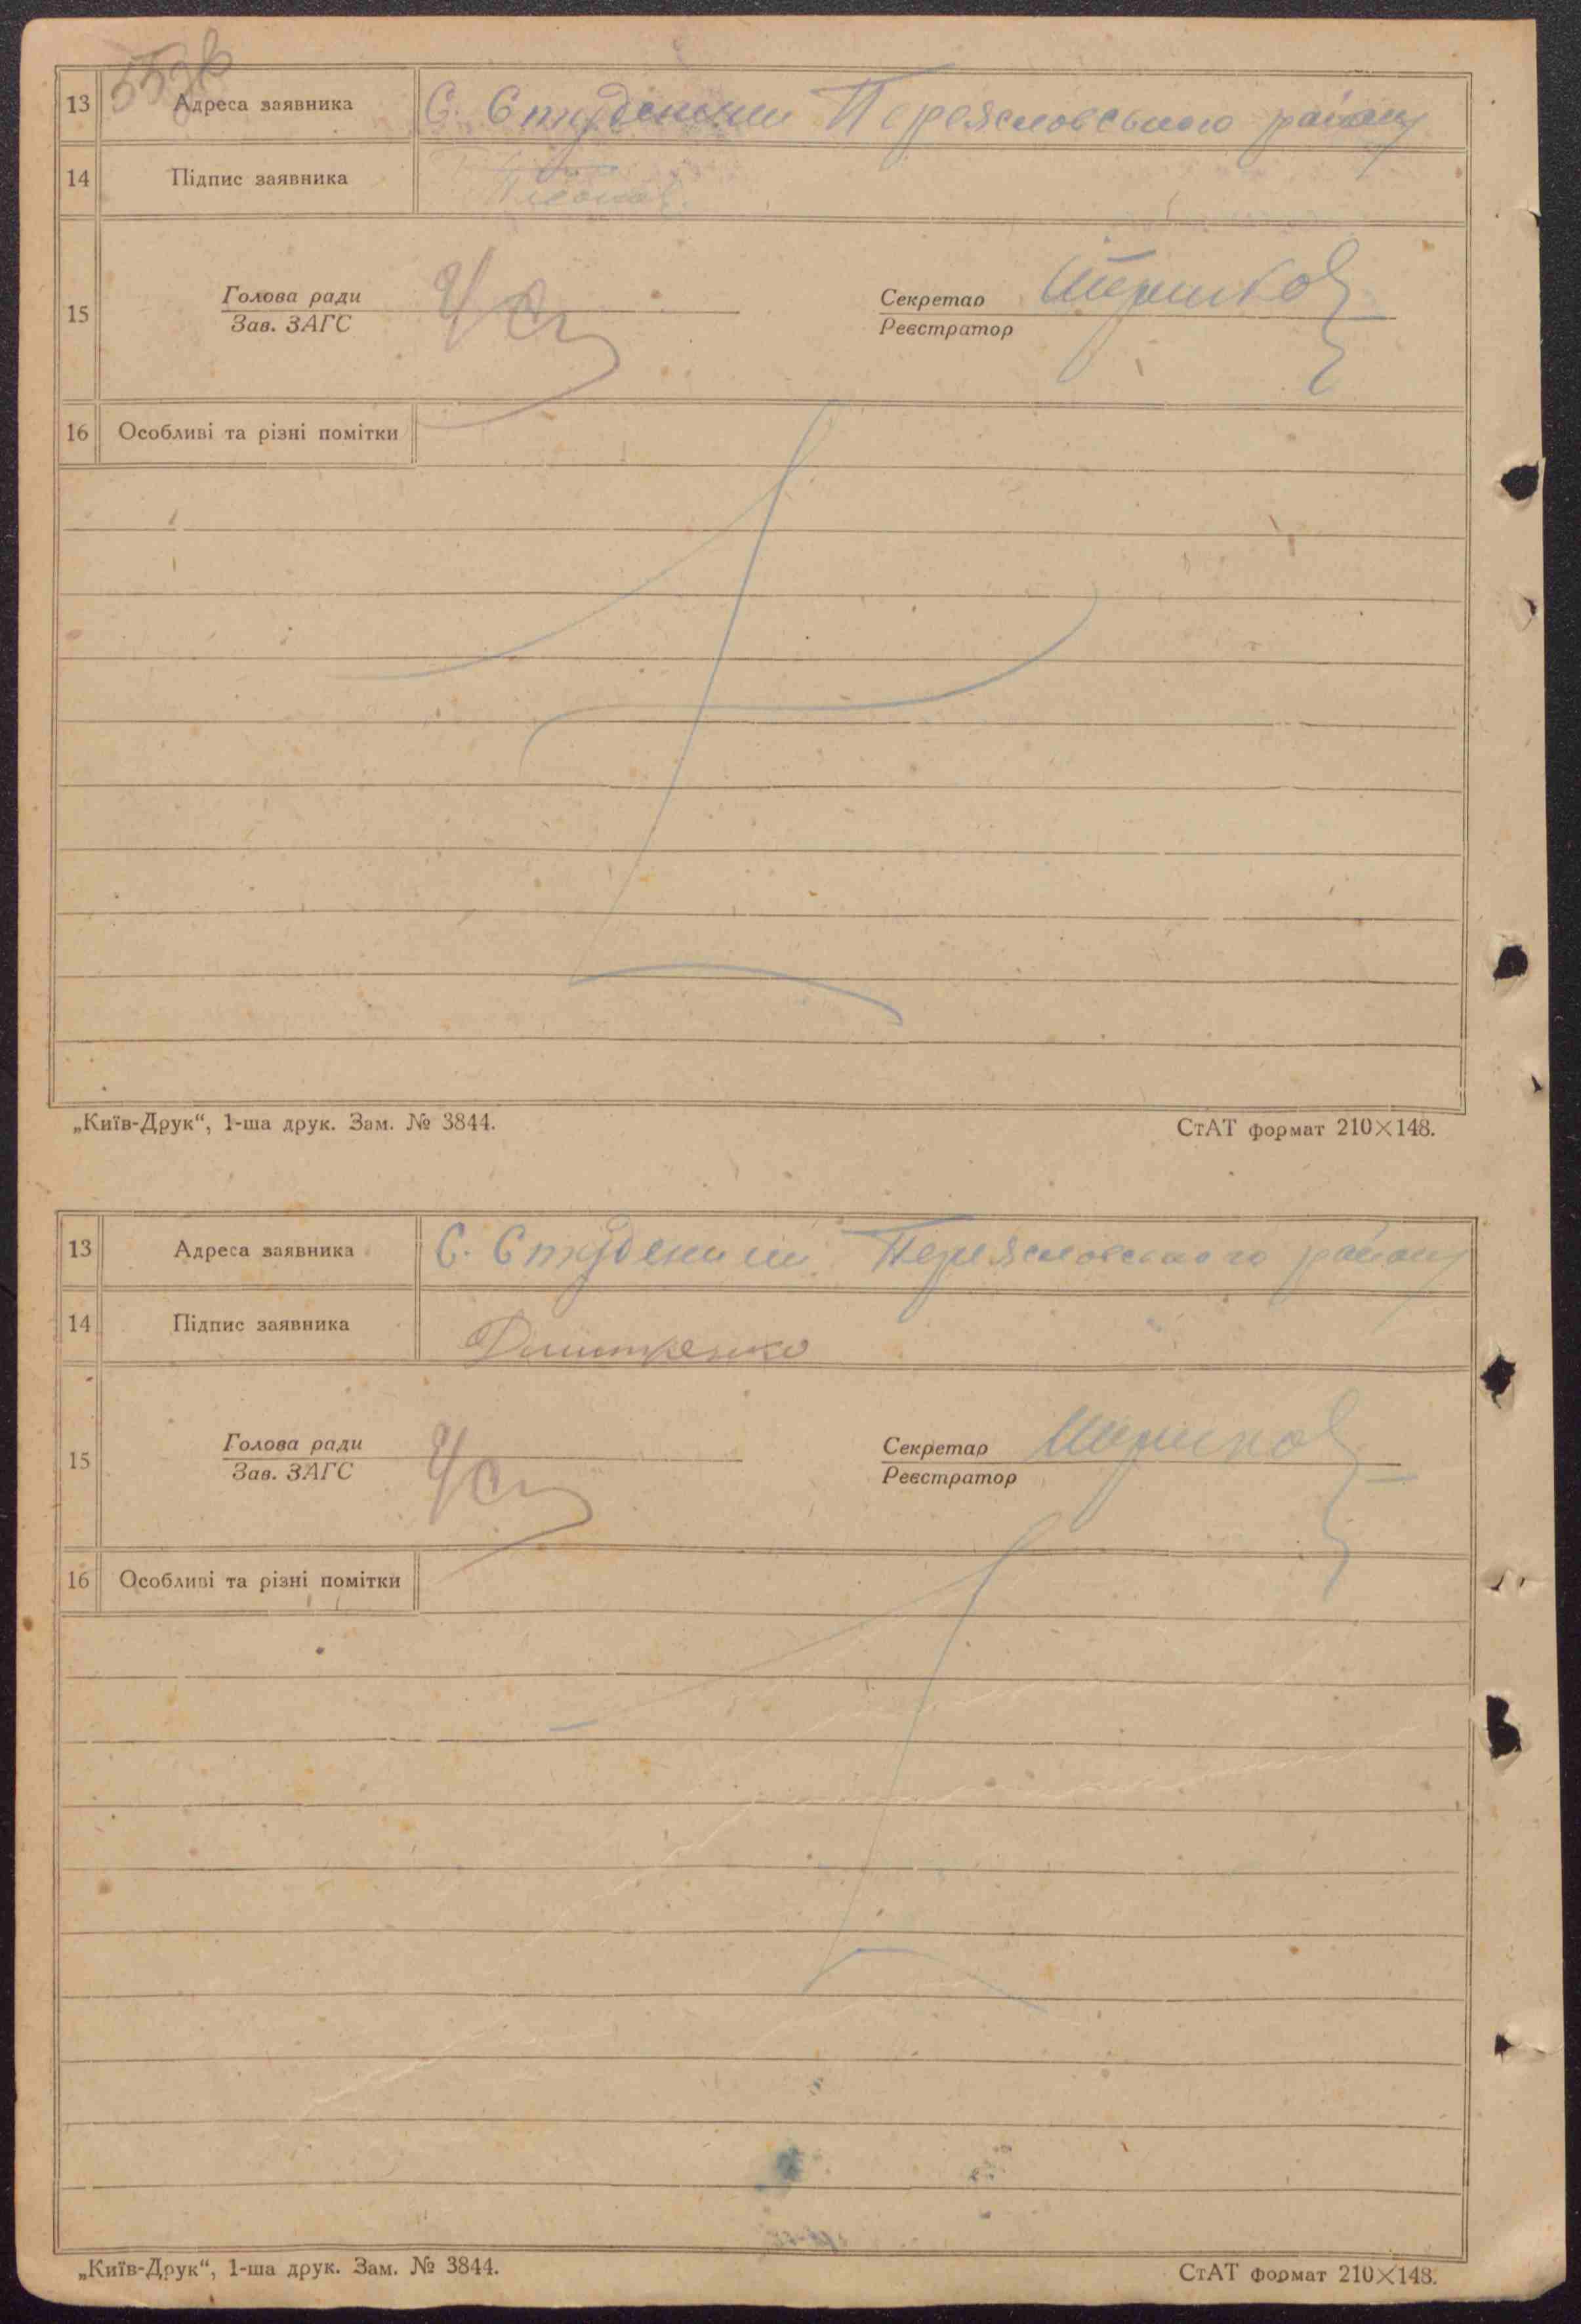 13 Адреса заявника С. Студеники Переяславського району
14 Підпис заявника
15 Голова ради Секретар
Зав. ЗАГС Реєстратор
16 Особливі та різні помітки
„Київ-Друк“, 1-ша друк. Зам. № 3844. СтАТ формат 210×148.
13 Адреса заявника С. Студеники Переяславського району
14 Підпис заявника Дмитренко
15 Голова ради Секретар
Зав. ЗАГС Реєстратор
16 Особливі та різні помітки
„Київ-Друк“, 1-ша друк. Зам. № 3844. СтАТ формат 210×148.